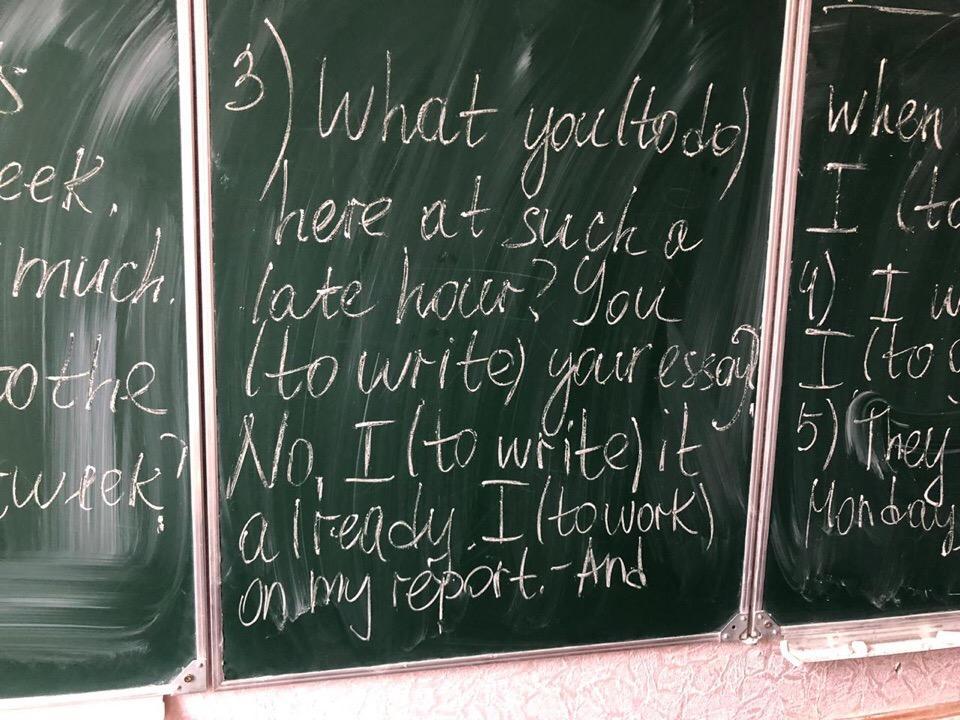 eek.
much.
to the
week?
3) What you (to do)
here at such a
late hour? You
(to write) your essay?
No, I (to write) it
already. I (to work)
on my report. - And
when
I (to
4) I
I (to
5) They
Monday